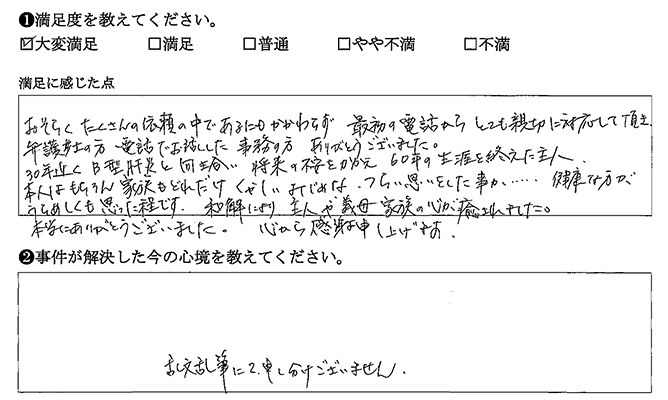 ❶満足度を教えてください。
☑大変満足 □満足 □普通 □やや不満 □不満
満足に感じた点
おそらくたくさんの依頼の中であるにもかかわらず 最初の電話からとても親切に対応して頂き
弁護士の方 電話でお話しした事務の方 ありがとうございました。
30年近くB型肝炎と向き合い 将来の不安をかかえ 60年の生涯を終えた主人、
本人はもちろん家族もどれだけくやしい みじめな、つらい思いをした事か…… 健康な方が
うらめしくも思った程です。 和解により 主人や義母 家族の心が癒されました。
本当にありがとうございました。 心から感謝申し上げます。
❷事件が解決した今の心境を教えてください。
乱文乱筆にて申し分けございません。